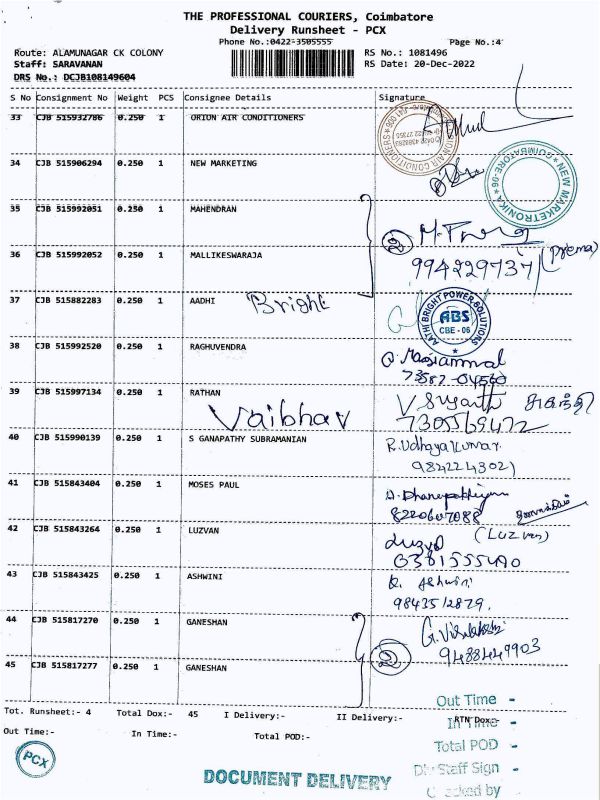 THE PROFESSIONAL COURIERS, Coimbatore
Delivery Runsheet - PCX
Phone No.:0422-3505555 Page No.:4
Route: ALAMUNAGAR CK COLONY RS No.: 1081496
Staff: SARAVANAN RS Date: 20-Dec-2022
DRS No.: DCJB108149604
S No Consignment No Weight PCS Consignee Details Signature
33 CJB 515932786 0.250 1 ORION AIR CONDITIONERS
34 CJB 515906294 0.250 1 NEW MARKETING
NEW MARKETRONIKA COIMBATORE-06
35 CJB 515992051 0.250 1 MAHENDRAN
36 CJB 515992052 0.250 1 MALLIKESWARAJA
② (Prema)
9942297371
37 CJB 515882283 0.250 1 AADHI Bright
AATHI BRIGHT POWER SOLUTIONS ABS CBE - 06
38 CJB 515992520 0.250 1 RAGHUVENDRA
39 CJB 515997134 0.250 1 RATHAN
Vaibhav
7305569472
40 CJB 515990139 0.250 1 S GANAPATHY SUBRAMANIAN R. Udhayakumar
9842243021
41 CJB 515843404 0.250 1 MOSES PAUL
8220607088
42 CJB 515843264 0.250 1 LUZVAN (LUZ van)
43 CJB 515843425 0.250 1 ASHWINI
9843512879.
44 CJB 515817270 0.250 1 GANESHAN
45 CJB 515817277 0.250 1 GANESHAN ② 9488449903
Out Time -
Tot. Runsheet:- 4 Total Dox:- 45 I Delivery:- II Delivery:- RTN Dox:-
In Time -
Out Time:- In Time:- Total POD:-
Total POD -
PCX
DOCUMENT DELIVERY
Staff Sign -
Checked by